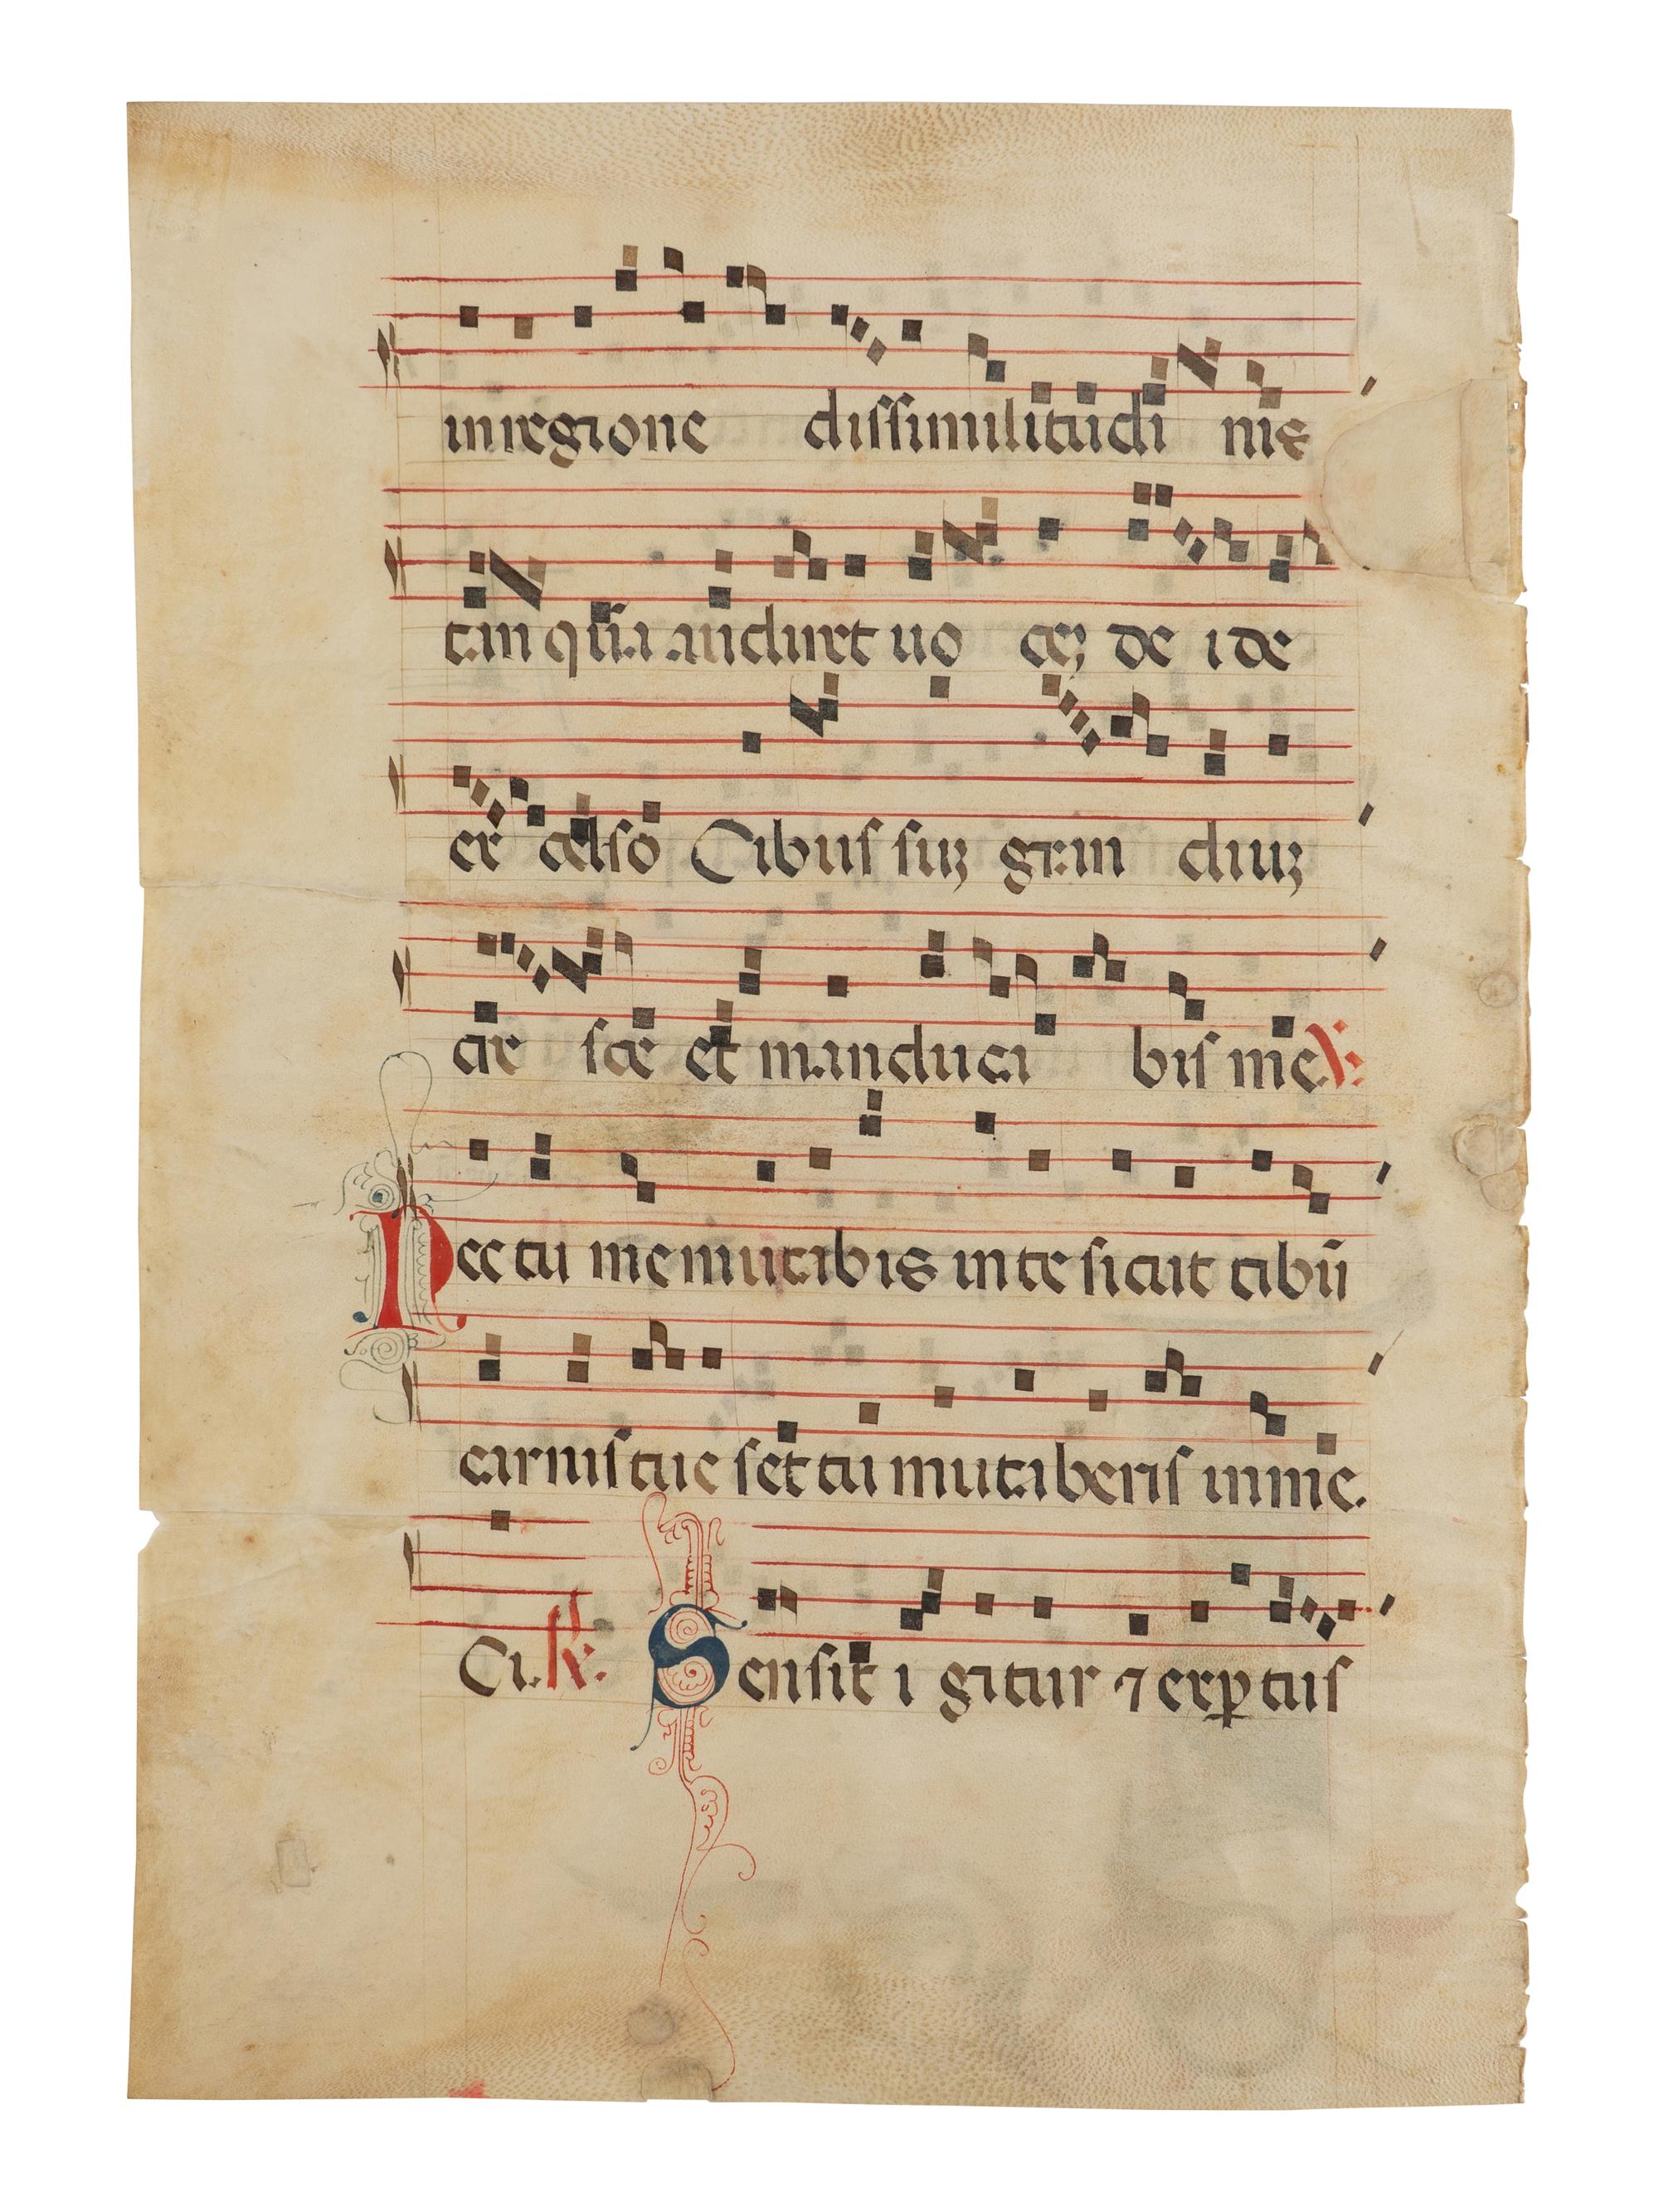 in regione dissimilitudi nis
tan quā audiret uo cēʒ de i de
ex celso Cibus suʒ gran diuʒ
cre sce et manduca bis me ℣.
Nec tu me mutabis in te sicut cibū
carnis tue set tu mutaberis in me.
Ci. ℟. Sensit i gitur ⁊ exꝑtus